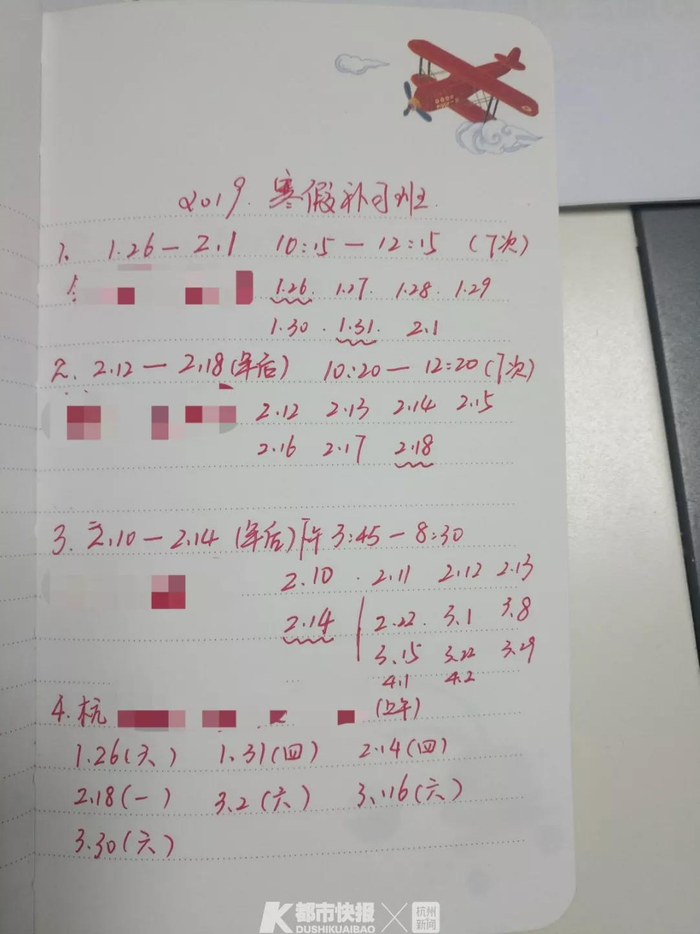 2019. 寒假补习班
1. 1.26 — 2.1 10:15 — 12:15 (7次)
1.26. 1.27. 1.28. 1.29
1.30. 1.31. 2.1
2. 2.12 — 2.18(年后) 10:20 — 12:20(7次)
2.12 2.13 2.14 2.15
2.16 2.17 2.18
3. 2.10 — 2.14 (年后)下午 3:45 — 8:30
2.10. 2.11 2.12 2.13
2.14 2.22. 3.1 3.8
3.15 3.22 3.29
4.1 4.2
4. 杭
1.26(六) 1.31(四) 2.14(四)
2.18(一) 3.2(六) 3.16(六)
3.30(六)
都市快报 × 杭州新闻
DUSHIKUAIBAO